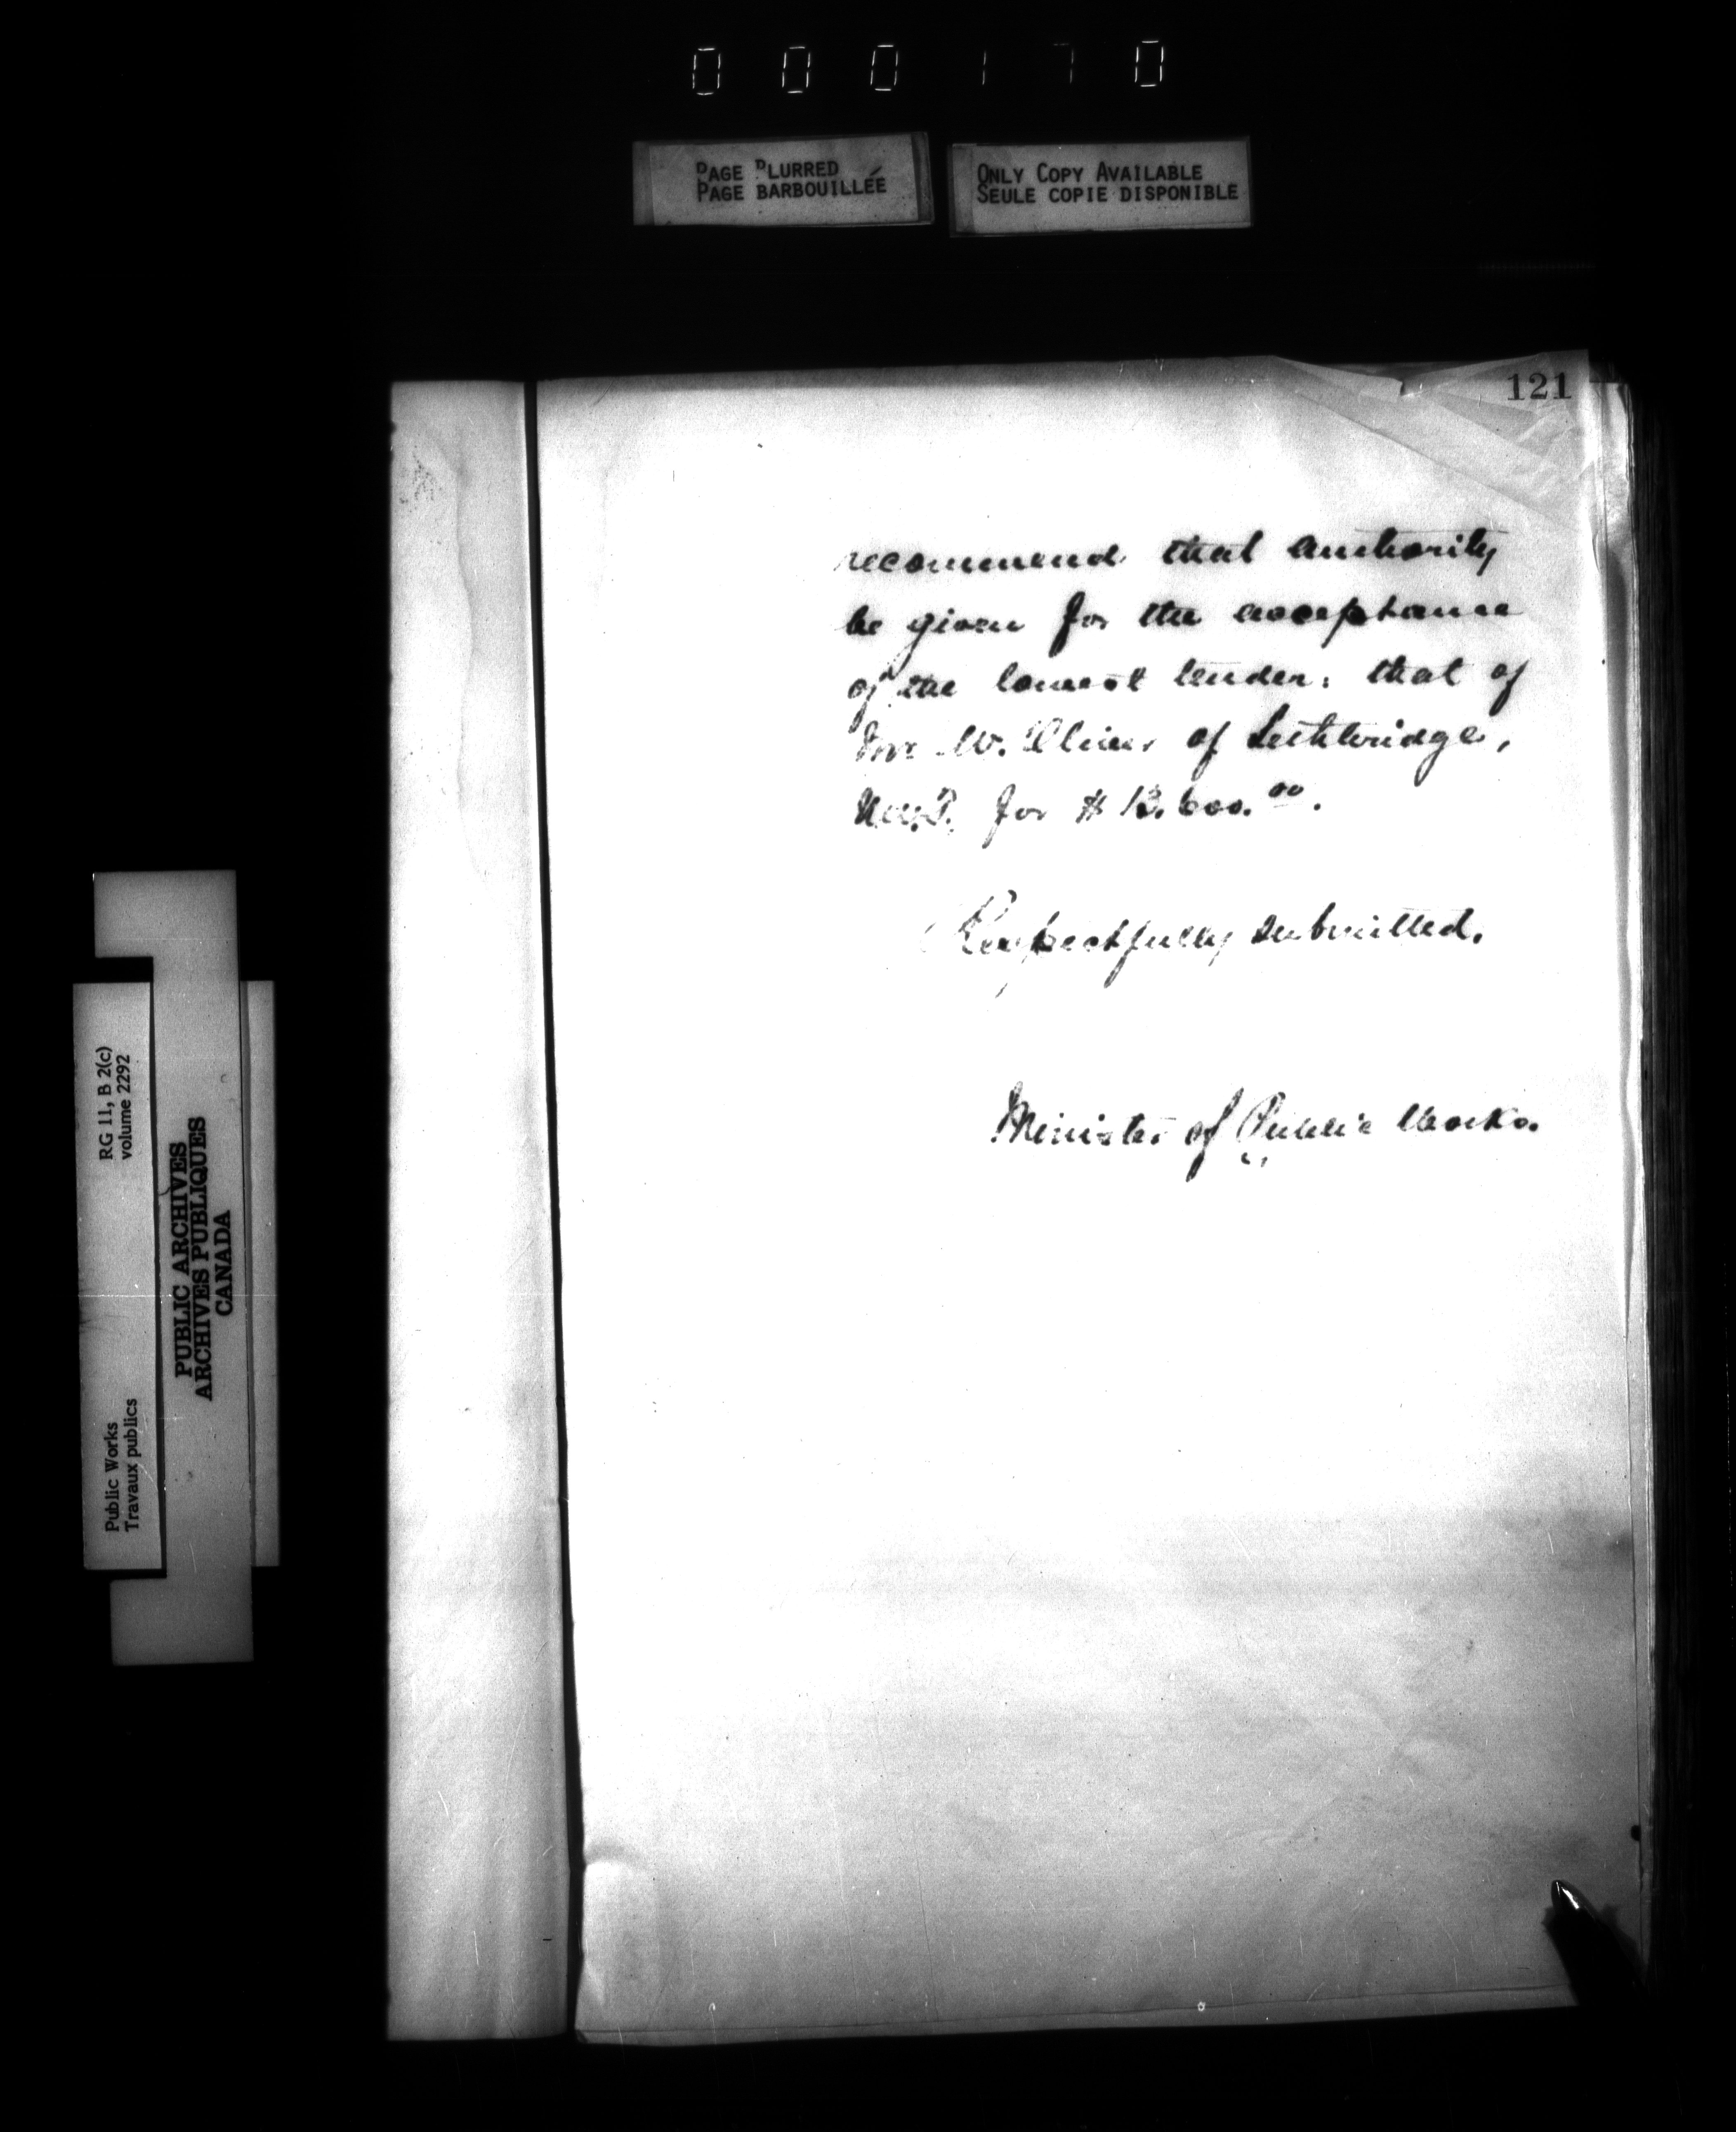 000170
PAGE BLURRED
PAGE BARBOUILLÉE
ONLY COPY AVAILABLE
SEULE COPIE DISPONIBLE
121
recommend that authority
be given for the acceptance
of the lowest tender: that of
W. Oliver of Lethbridge,
N.W.T. for $13,600.00.
Respectfully submitted,
Minister of Public Works.
RG 11, B 2(c)
volume 2292
Public Works
Travaux publics
PUBLIC ARCHIVES
ARCHIVES PUBLIQUES
CANADA